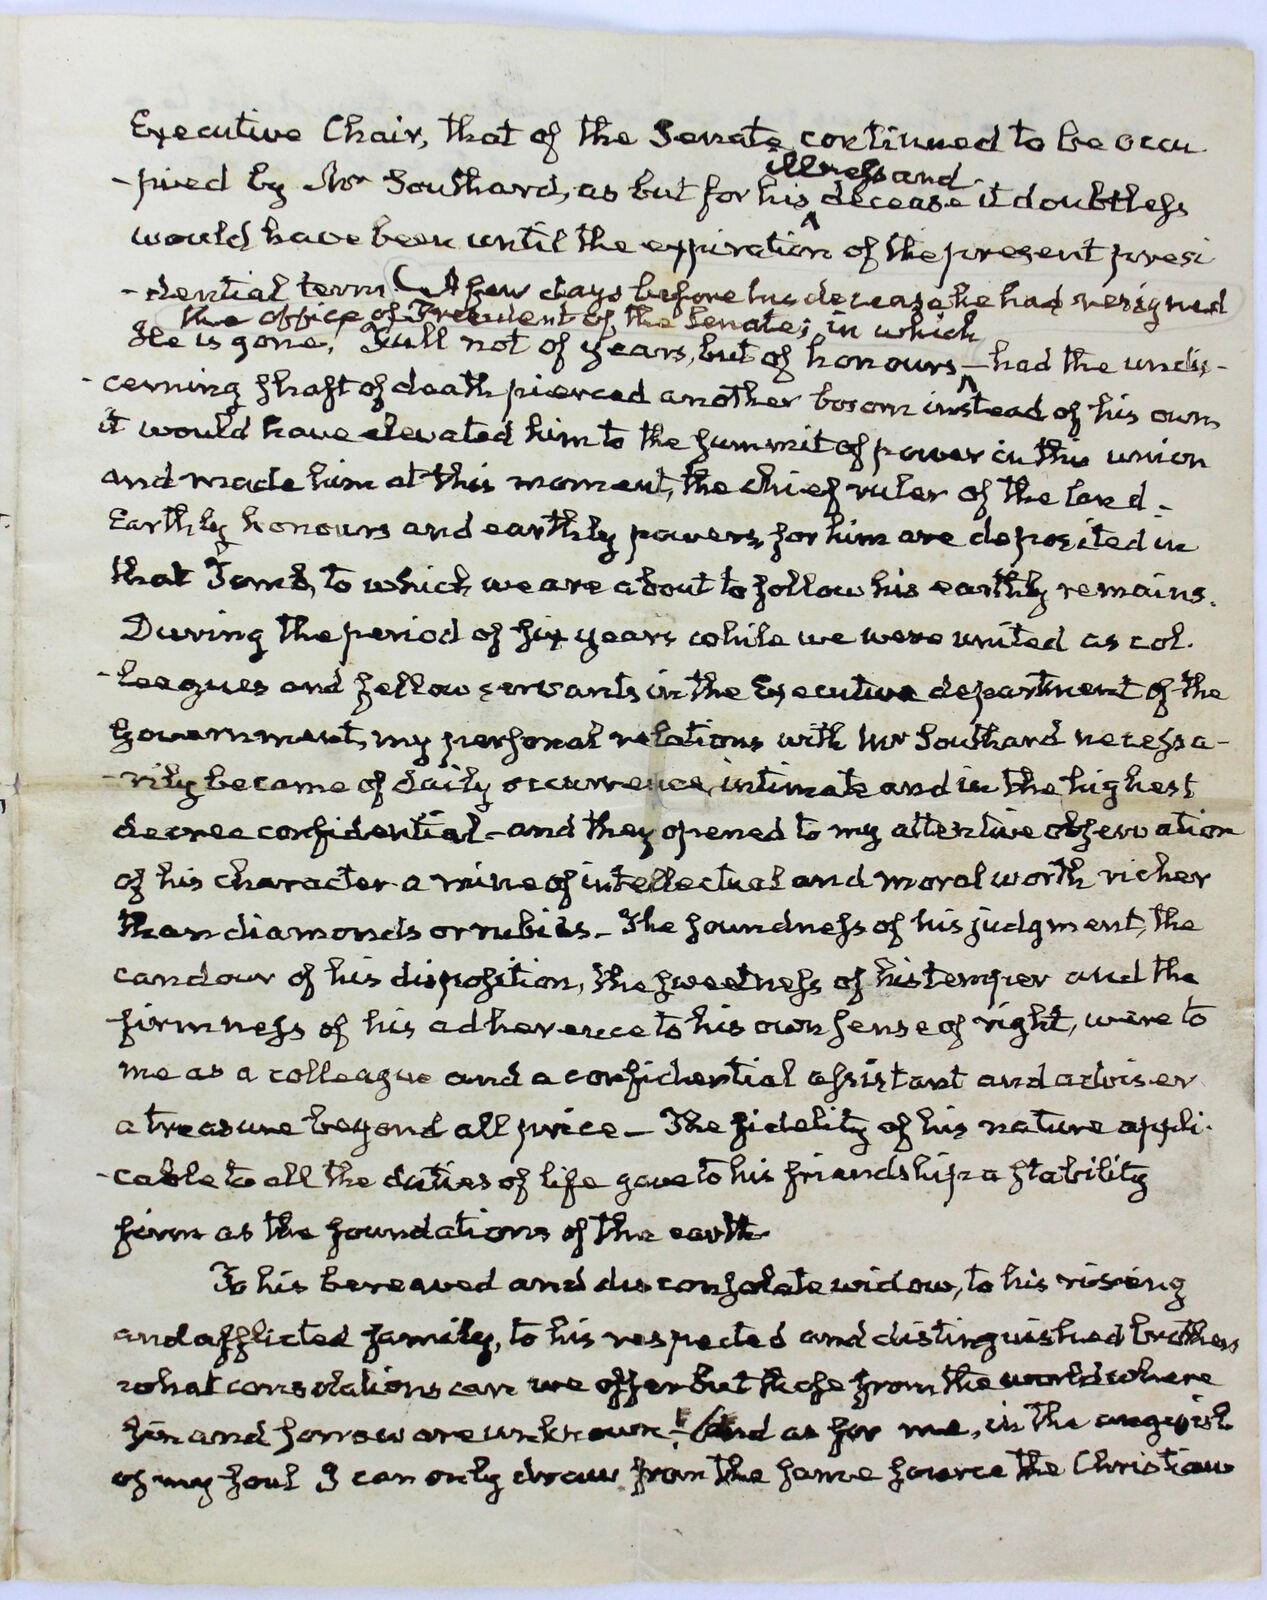 Executive Chair, that of the Senate continued to be occu
illness and
-pied by Mr Southard, as but for his ^ decease it doubtless
would have been until the expiration of the present presi
-dential term (A few days before his decease he had resigned
the office of President of the Senate; in which
He is gone! Full not of years, but of honours — had the undis-
-cerning shaft of death pierced another bosom instead of his own
it would have elevated him to the summit of power in this union
and made him at this moment, the chief ruler of the land.
Earthly honours and earthly powers, for him are deposited in
that Tomb, to which we are about to follow his earthly remains.
During the period of six years while we were united as col-
-leagues and fellow servants in the Executive department of the
Government, my personal relations with Mr Southard necessa-
-rily became of daily occurrence, intimate and in the highest
degree confidential - and they opened to my attentive observation
of his character a mine of intellectual and moral worth richer
than diamonds or rubies - The soundness of his judgment, the
candour of his disposition, the sweetness of his temper and the
firmness of his adherence to his own sense of right, were to
me as a colleague and a confidential assistant and adviser
a treasure beyond all price — The fidelity of his nature appli-
-cable to all the duties of life gave to his friendship a stability
firm as the foundations of the earth.
To his bereaved and disconsolate widow, to his rising
and afflicted family, to his respected and distinguished brothers
what consolations can we offer but those from the world where
sin and sorrow are unknown! And as for me, in the anguish
of my soul I can only draw from the same source the Christian